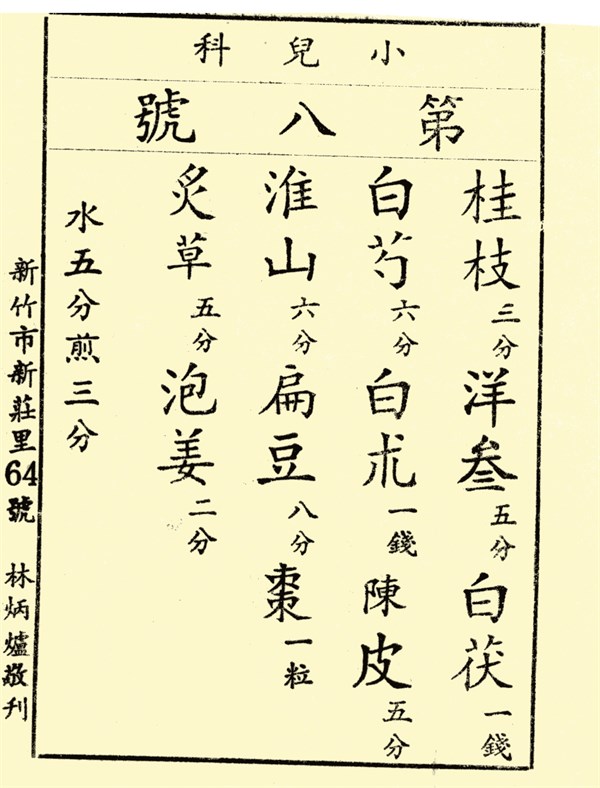 小兒科
第八號
桂枝三分洋叁五分白茯一錢
白芍六分白朮一錢陳皮五分
淮山六分扁豆八分棗一粒
炙草五分泡姜二分
水五分煎三分
新竹市新莊里64號 林炳爐敬刊